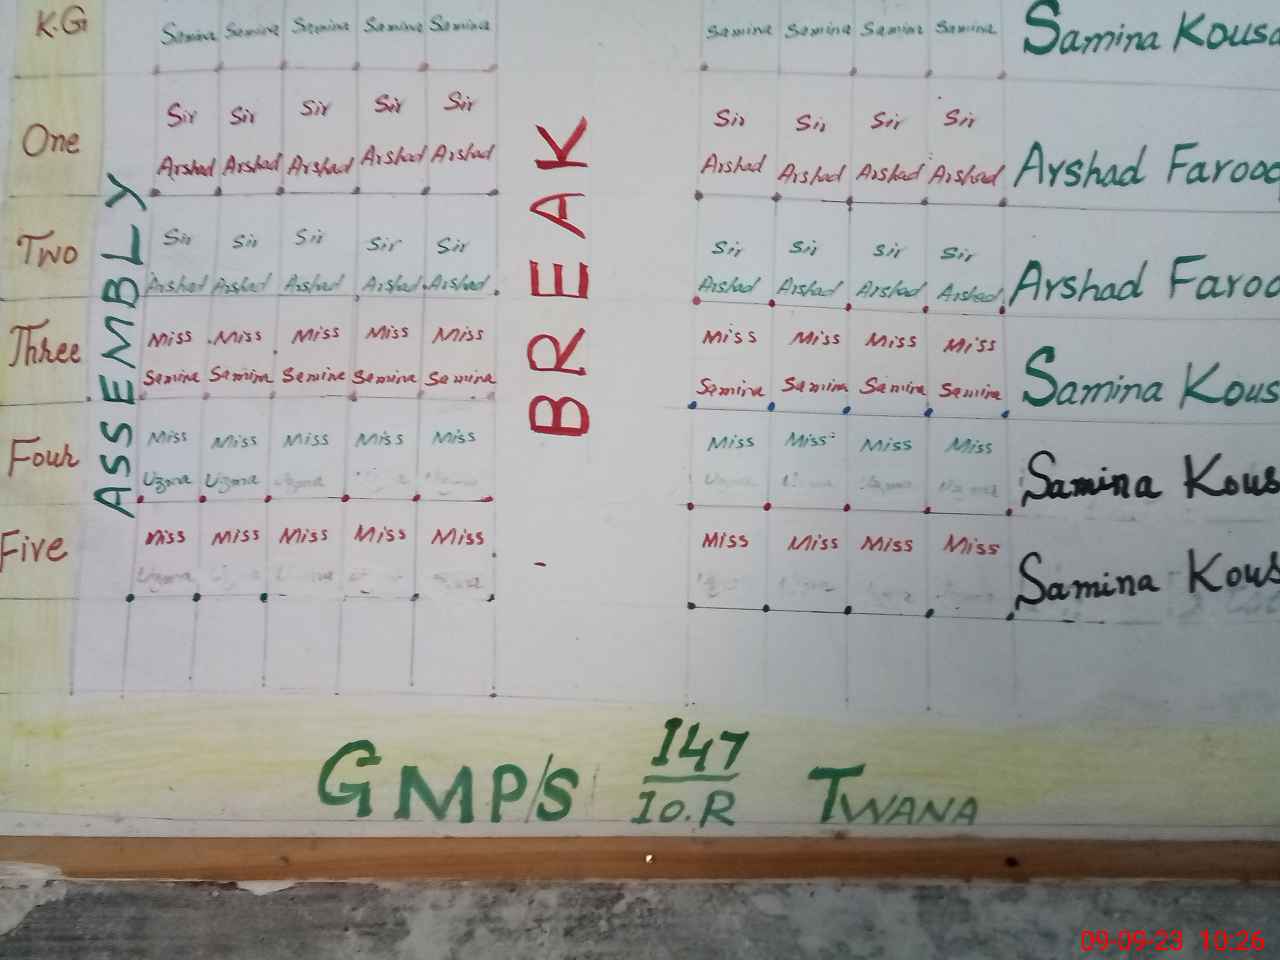 K.G Samina Samina Samina Samina Samina Samina Samina Samina Samina Samina Kous
One Sir Sir Sir Sir Sir Sir Sir Sir Sir
Arshad Arshad Arshad Arshad Arshad Arshad Arshad Arshad Arshad Arshad Farooq
Two Sir Sir Sir Sir Sir Sir Sir Sir Sir
Arshad Arshad Arshad Arshad Arshad Arshad Arshad Arshad Arshad Arshad Faroo
Three Miss Miss Miss Miss Miss Miss Miss Miss Miss
Samina Samina Samina Samina Samina Samina Samina Samina Samina Samina Kous
Four Miss Miss Miss Miss Miss Miss Miss Miss Miss
Uzma Uzma Samina Kous
Five Miss Miss Miss Miss Miss Miss Miss Miss Miss
Uzma Samina Kous
ASSEMBLY
BREAK
GMP/S 147/10.R TWANA
09-09-23 10:26